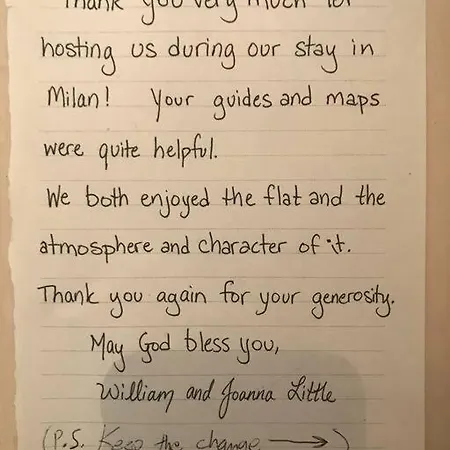 Thank you very much for
hosting us during our stay in
Milan! Your guides and maps
were quite helpful.
We both enjoyed the flat and the
atmosphere and character of it.
Thank you again for your generosity.
May God bless you,
William and Joanna Little
(P.S. Keep the change →)